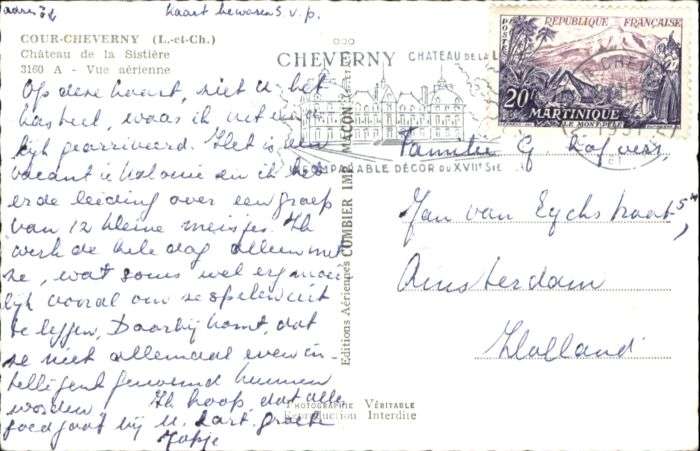 kaart bewaren s.v.p.
COUR-CHEVERNY (L.-et-Ch.)
Château de la Sistière
3160 A - Vue aérienne
Op deze kaart, ziet u het
kasteel, waar ik uit
lijk gearriveerd. Het is een
vacantie kolonie en ik heb
er de leiding over een groep
van 12 kleine meisjes. Ik
werk de hele dag alleen met
ze, wat soms wel erg moei
lijk vooral om ze spelen uit
te leggen. Daarbij komt, dat
ze niet allemaal even in-
telligent genoemd kunnen
worden. Ik hoop dat alles
goed gaat bij u. Hart. groeten
Jopje
Editions Aériennes COMBIER IMP. MACON
CHEVERNY CHATEAU DE LA
DÉCOR DU XVIIe SIE
POSTES
REPUBLIQUE FRANÇAISE
20F
MARTINIQUE
LE MONT PELÉ
Familie G.
Jan van Eyckstraat 5
Amsterdam
Holland
PHOTOGRAPHIE Véritable
Reproduction Interdite